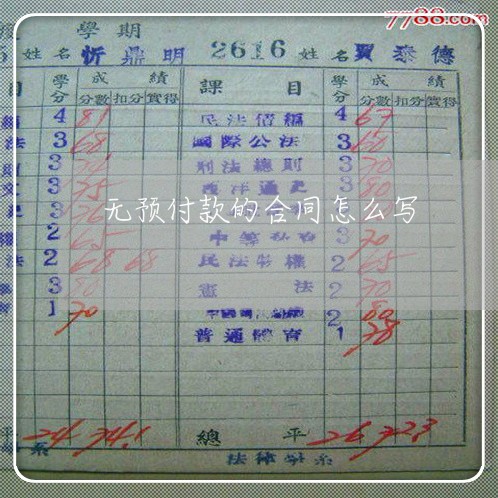 7788.com
學期
姓名 忻鼎明 2616 姓名 賈泰德
目 學分 成績 課目 學分 成績
分數 扣分 實得 分數 扣分 實得
4 81 民法債編 4 67
法 3 68 國際公法 3 60
3 刑法總則 3 70
3 75 西洋通史 3 80
无预付款的合同怎么写
2 65 3 70
法 2 68 68 民法物權 2 65
3 80 憲法 2 70
1 70 2 80
普通體育 1 78
平 24 74.1 總平 26 72.3
系 法律學系